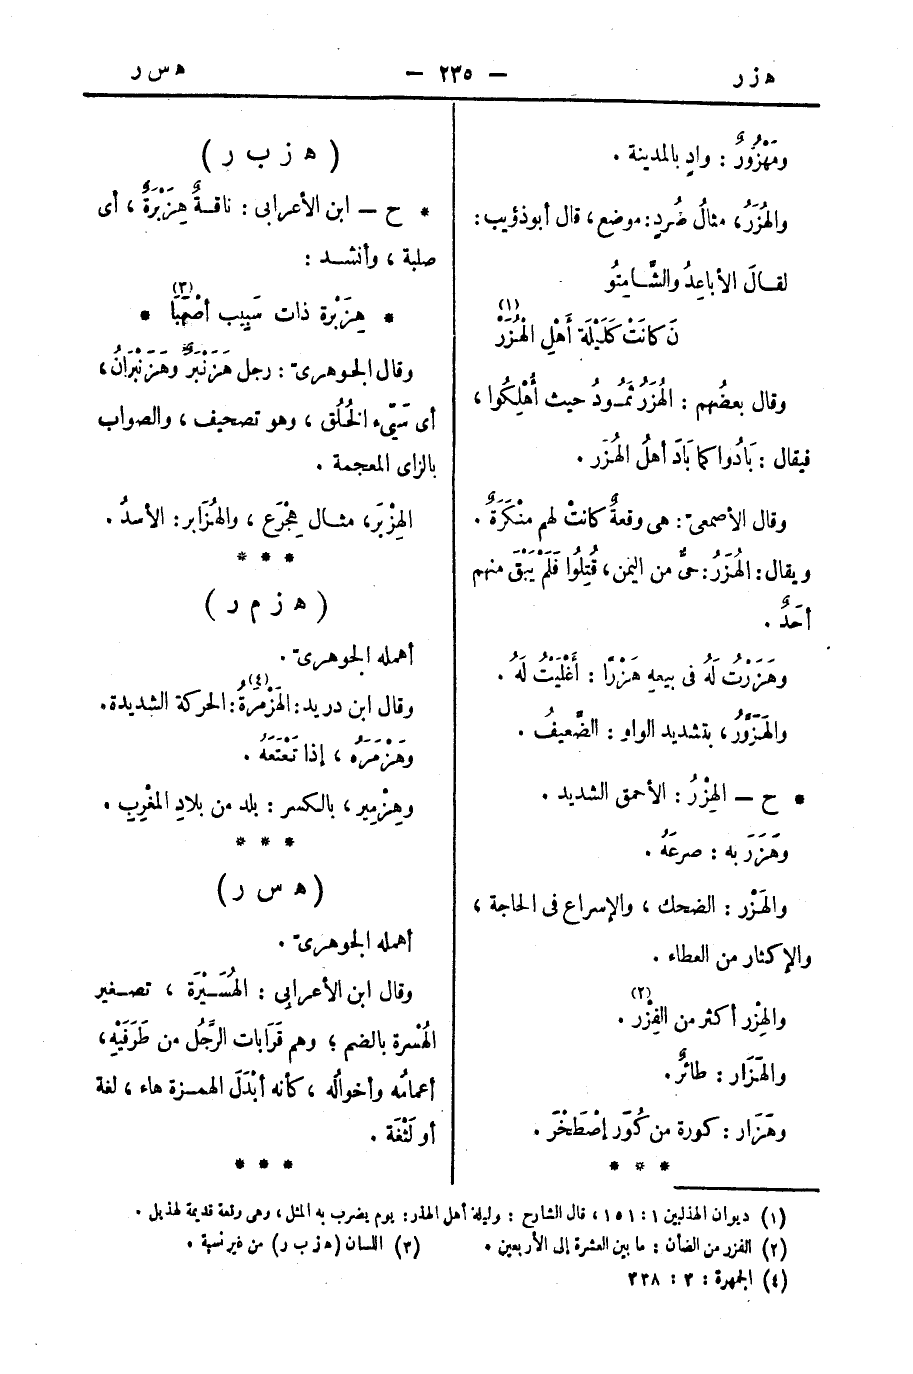 هزر
— ٢٣٥ —
هسر
ومَهْزُورٌ : وادٍ بالمدينة .
والهُزَرُ، مثالُ صُردٍ: موضع، قال أبو ذؤيب:
لقـالَ الأباعِدُ والشَّـامِتُو
نَ كانَتْ كَلَيْلَة أَهْلِ الْهُزَرْ (١)
وقال بعضُهم : الهُزَرُ ثَمُـودُ حيث أُهْلِكُوا ،
فيقال : بَادُوا كما بَادَ أهلُ الهُزَر .
وقال الأصمعىّ : هى وقعةٌ كانتْ لهم منْكَرَةٌ .
ويقال: الهُزَرُ: حىٌّ من اليمن، قُتِلُوا فَلَمْ يَبْقَ منهم
أحَدٌ .
وهَزَرْتُ لَهُ فى بيعهِ هَزْرًا : أَغْلَيْتُ لَهُ .
والهَـزَوَّرُ، بتشديد الواو : الضَّعيفُ .
* ح — الهِزْرُ : الأحمق الشديد .
وهَزَرَ به : صرعَهُ .
والهَـزْر : الضحك ، والإسراع فى الحاجة ،
والإكثار من العطاء .
والهِزْر أكثر من الفِزْر (٢) .
والهَـزَار : طائرٌ .
وهَزَار : كورة من كُوَر إصْطَخْرَ .
* * *
( ه ز ب ر )
* ح — ابن الأعرابى : ناقـةٌ هِزَبْرَةٌ ، أى
صلبة ، وأنشـد :
* هِزَبْرة ذات سَبِيب أصْهَبَا (٣) *
وقال الجوهرىّ : رجل هَزَنْبَرٌ وهَزَنْبَرَانٌ ،
أى سَيِّىء الخُلُق ، وهو تصحيف ، والصواب
بالزاى المعجمة .
الهِزْبَر، مثـال هِجْرَع ، والهُزَابر: الأسدُ .
* * *
( ه ز م ر )
أهمله الجوهرىّ .
وقال ابن دريد: الهَزْمَرَةُ (٤): الحركة الشديدة .
وهَزْمَرَه ، إذا تَعْتَعَهُ .
وهِزْمِير ، بالكسر : بلد من بلادِ المغْرِب .
* * *
( ه س ر )
أهمله الجوهرىّ .
وقال ابن الأعرابى : الهُسَـيْرَة ، تصـغير
الهُسْرة بالضم ؛ وهم قَرَابات الرَّجُل من طَرَفَيْهِ ،
أعمامُه وأخوالُه ، كأنه أبْدَلَ الهمـزة هاء ، لغة
أو لَثْغَة .
* * *
(١) ديوان الهذليين ١ : ١٥١، قال الشارح : وليلة أهل الهذر: يوم يضرب به المثل، وهى وقعة قديمة لهذيل .
(٢) الفزر من الضأن : ما بين العشرة إلى الأربعين . (٣) اللسان (ه ز ب ر) من غير نسبة .
(٤) الجمهرة : ٣ : ٣٣٨